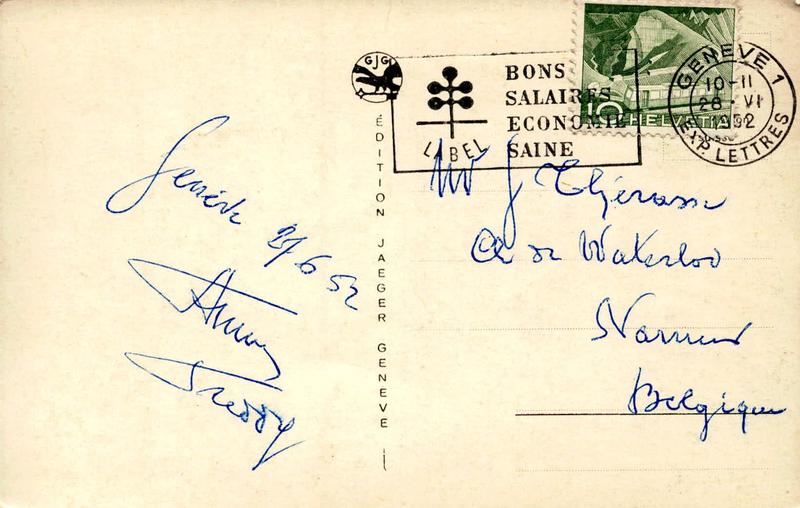 Genève 27/6 52
Freddy
GJG
ÉDITION JAEGER GENEVE
BONS
SALAIRES
ECONOMIE
SAINE
LABEL
10 HELVETIA
GENEVE 1
10-11
28 · VI
1952
EXP. LETTRES
Mr J
de Waterloo
Namur
Belgique